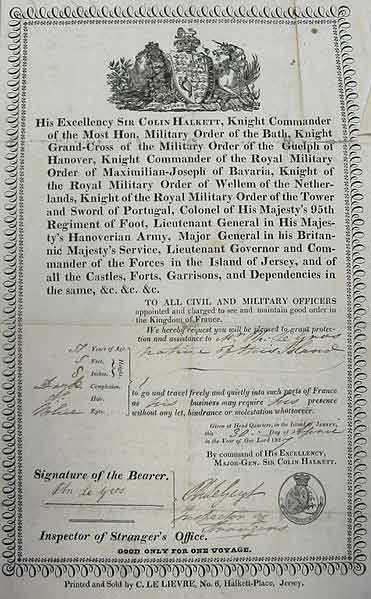 His Excellency Sir Colin Halkett, Knight Commander
of the Most Hon. Military Order of the Bath, Knight
Grand-Cross of the Military Order of the Guelph of
Hanover, Knight Commander of the Royal Military
Order of Maximilian-Joseph of Bavaria, Knight of
the Royal Military Order of Wellem of the Nether-
lands, Knight of the Royal Military Order of the Tower
and Sword of Portugal, Colonel of His Majesty's 95th
Regiment of Foot, Lieutenant General in His Majes-
ty's Hanoverian Army, Major General in his Britan-
nic Majesty's Service, Lieutenant Governor and Com-
mander of the Forces in the Island of Jersey, and of
all the Castles, Forts, Garrisons, and Dependencies in
the same, &c. &c. &c.
TO ALL CIVIL AND MILITARY OFFICERS
appointed and charged to see and maintain good order in
the Kingdom of France.
We hereby request you will be pleased to grant protec-
tion and assistance to
native of this Island
Years of Age
5 Feet
8 Inches
Height
Complexion
Hair
Eyes
to go and travel freely and quietly into such parts of France
as his business may require his presence
without any let, hindrance or molestation whatsoever.
Given at Head Quarters, in the Island of Jersey,
this 30 Day of
in the Year of Our Lord 182
By command of His Excellency,
Major-Gen. Sir Colin Halkett.
Signature of the Bearer.
Inspector of Stranger's Office.
GOOD ONLY FOR ONE VOYAGE.
Printed and Sold by C. LE LIEVRE, No. 6, Halkett-Place, Jersey.